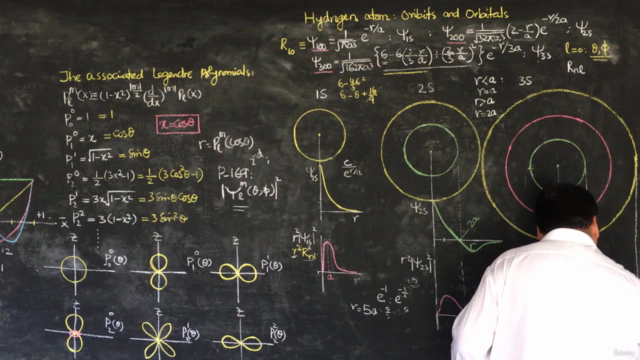 Hydrogen atom: Orbits and Orbitals
R₁₀ ≡ Ψ₁₀₀ = 1/√πa³ e^{-r/a} : Ψ₁S ; Ψ₂₀₀ = 1/√32πa³ (2 - r/a) e^{-r/2a} : Ψ₂S
l=0: θ, φ
Rnl
1S
2S
3S
r<a:
r=a:
r>a
r=2a:
The associated Legendre Polynomials:
Pₗᵐ(x) ≡ (1-x²)^{|m|/2} (d/dx)^{|m|} Pₗ(x)
P₀⁰ = 1 = 1
P₁⁰ = x = cosθ
x = cosθ
P₁¹ = √1-x² = sinθ
P₂⁰ = ½(3x²-1) = ½(3cos²θ-1)
P₂¹ = 3x√1-x² = 3sinθcosθ
P₂² = 3(1-x²) = 3sin²θ
r = Pₗᵐ(cosθ)
P-167:
|Yₗᵐ(θ,φ)|²
Ψ₁S
r
Ψ₂S
2a
r
r²|Ψ₁S|²
r²R²nl
a
r
r²|Ψ₂S|²
r=5a
Z
P₀⁰(θ)
Z
P₁⁰(θ)
Z
P₁¹(θ)
Z
P₂⁰(θ)
Z
P₂¹(θ)
Z
P₂²(θ)
+1
x